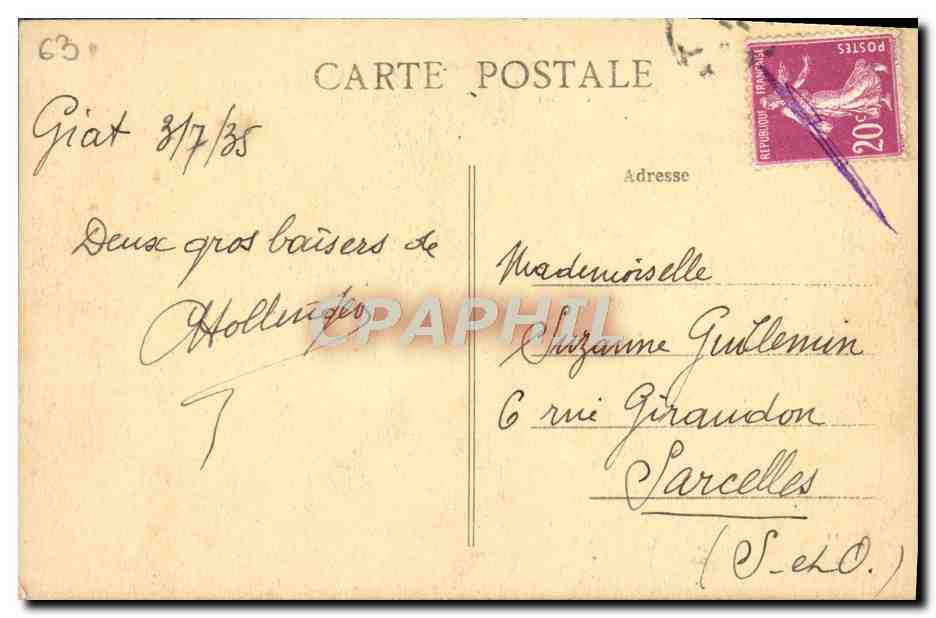 63
CARTE POSTALE
REPUBLIQUE FRANÇAISE
POSTES
20c
Giat 3/7/35
Adresse
Deux gros baisers de
Mademoiselle
Suzanne Guillemin
6 rue Giraudon
Sarcelles
(S-et-O.)
CPAPHIL